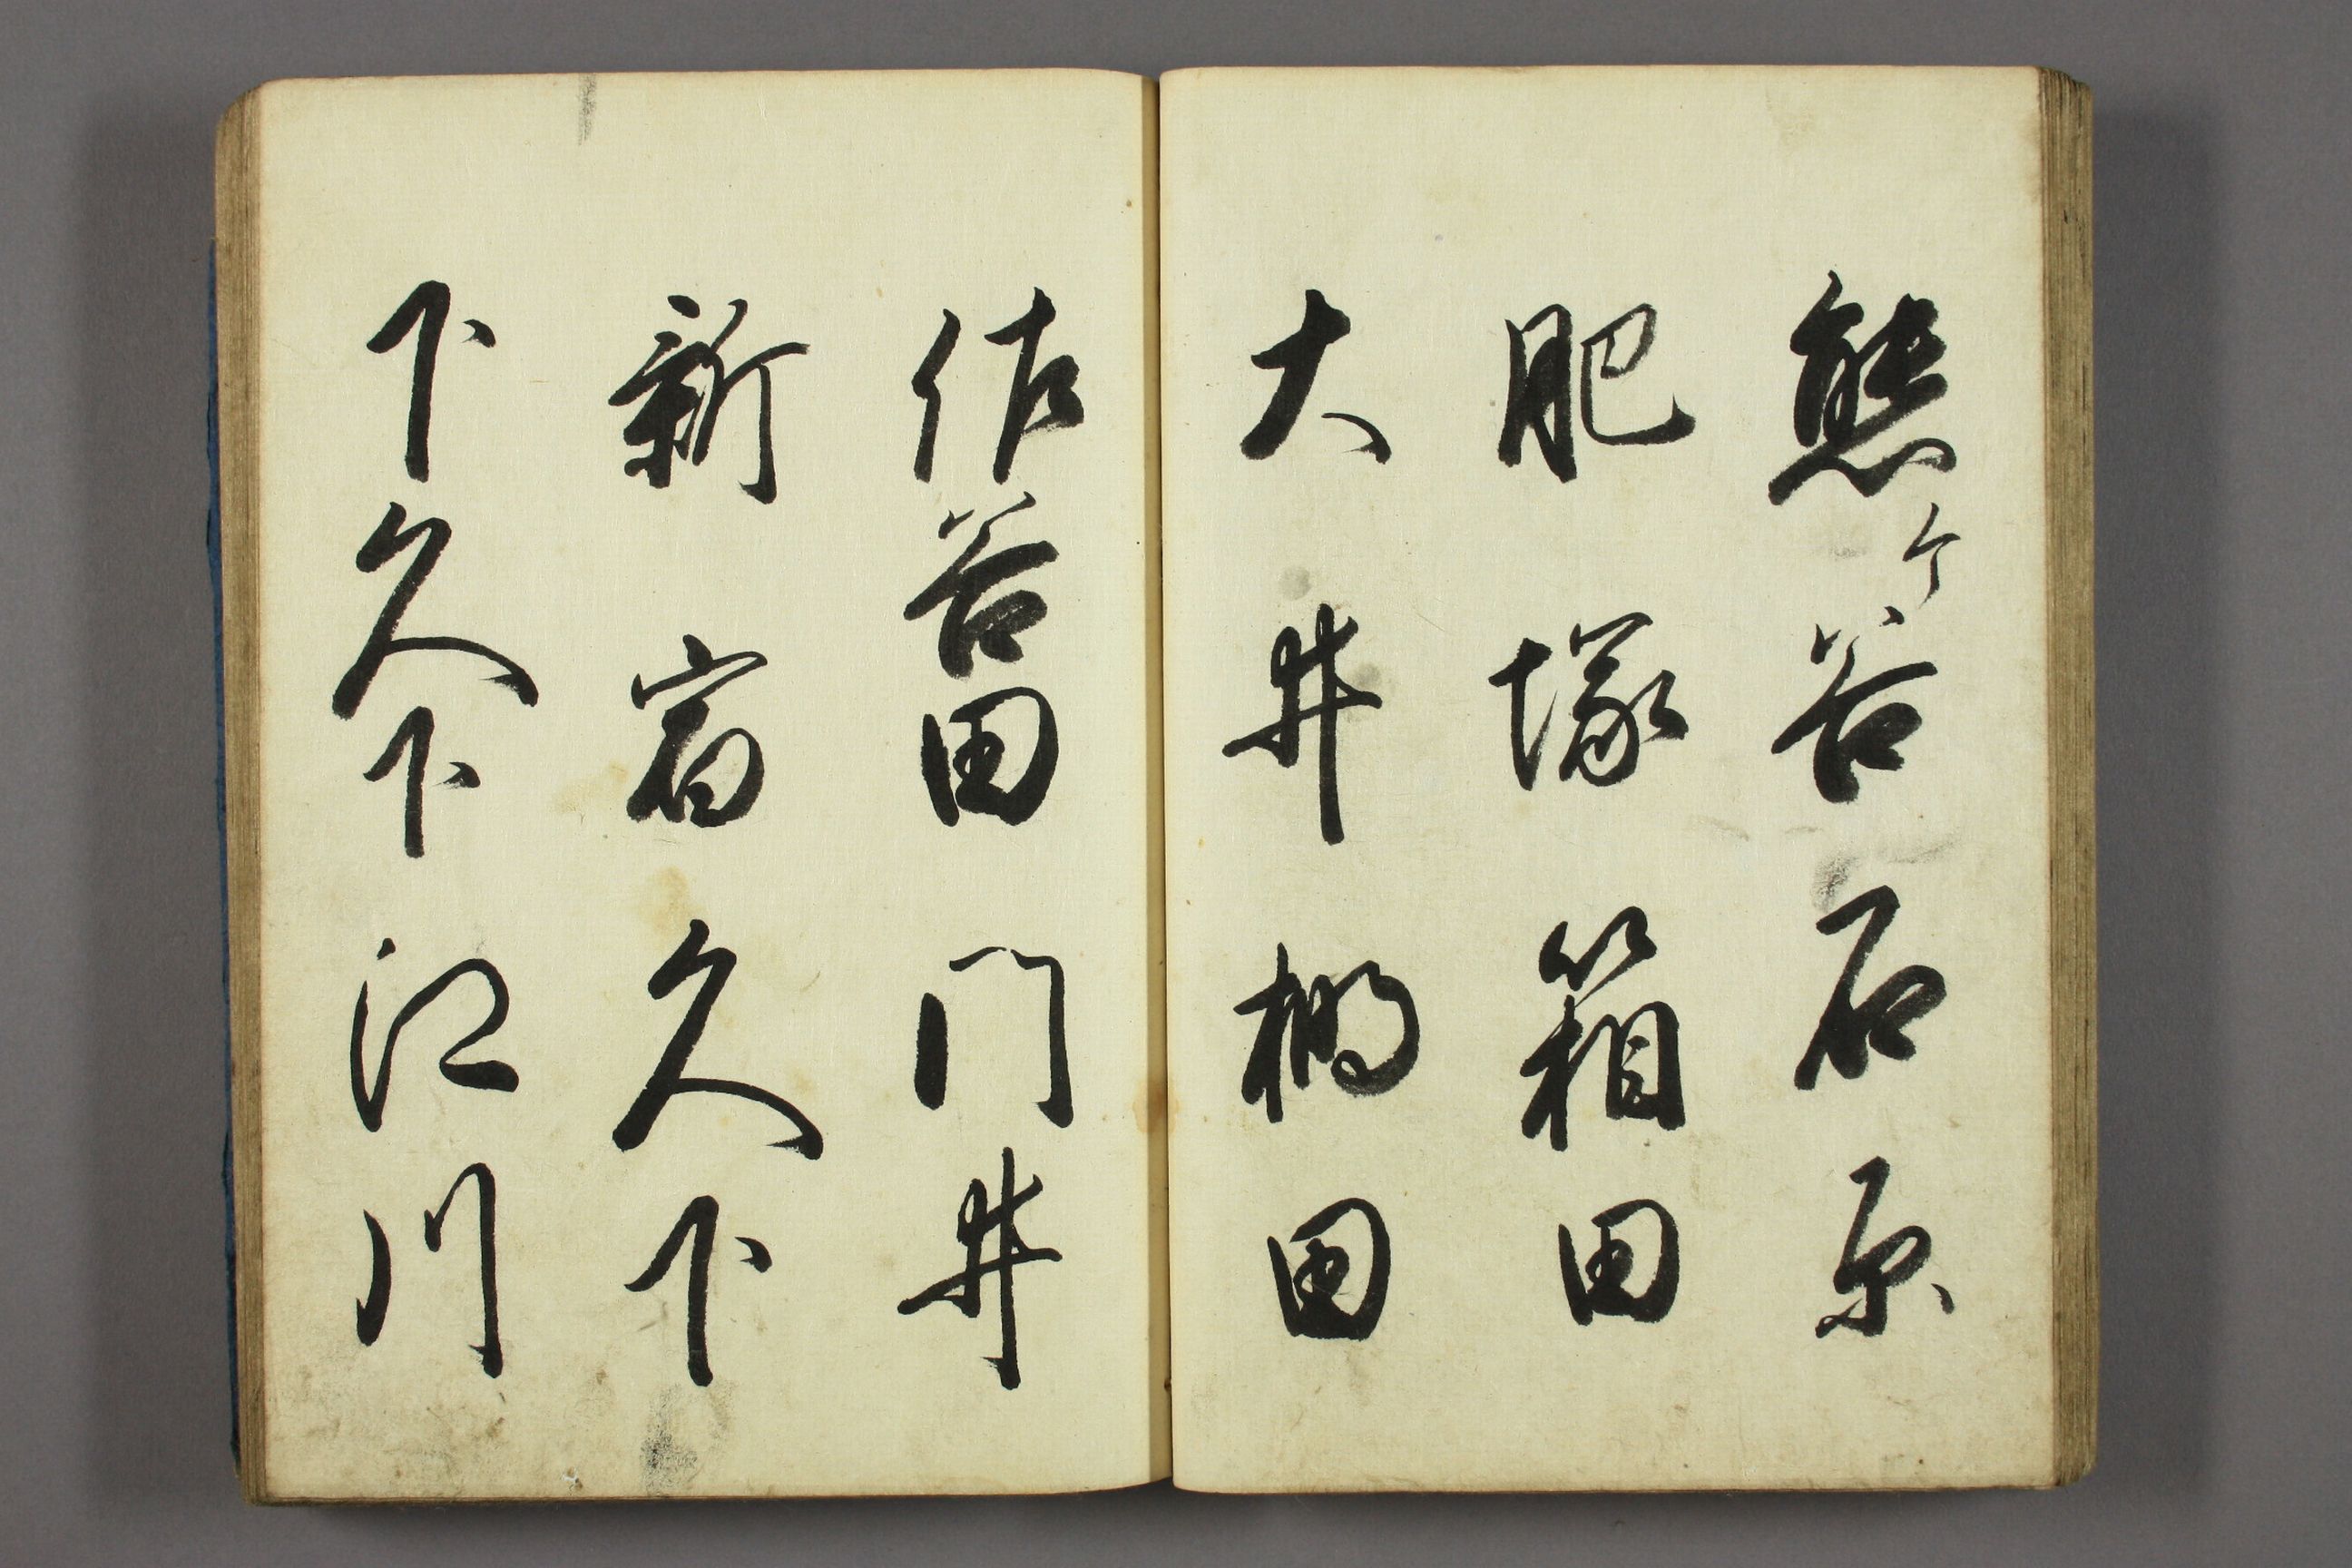 熊ケ谷石原
肥塚箱田
大井棚田
佐谷田門井
新宿久下
下久下江川